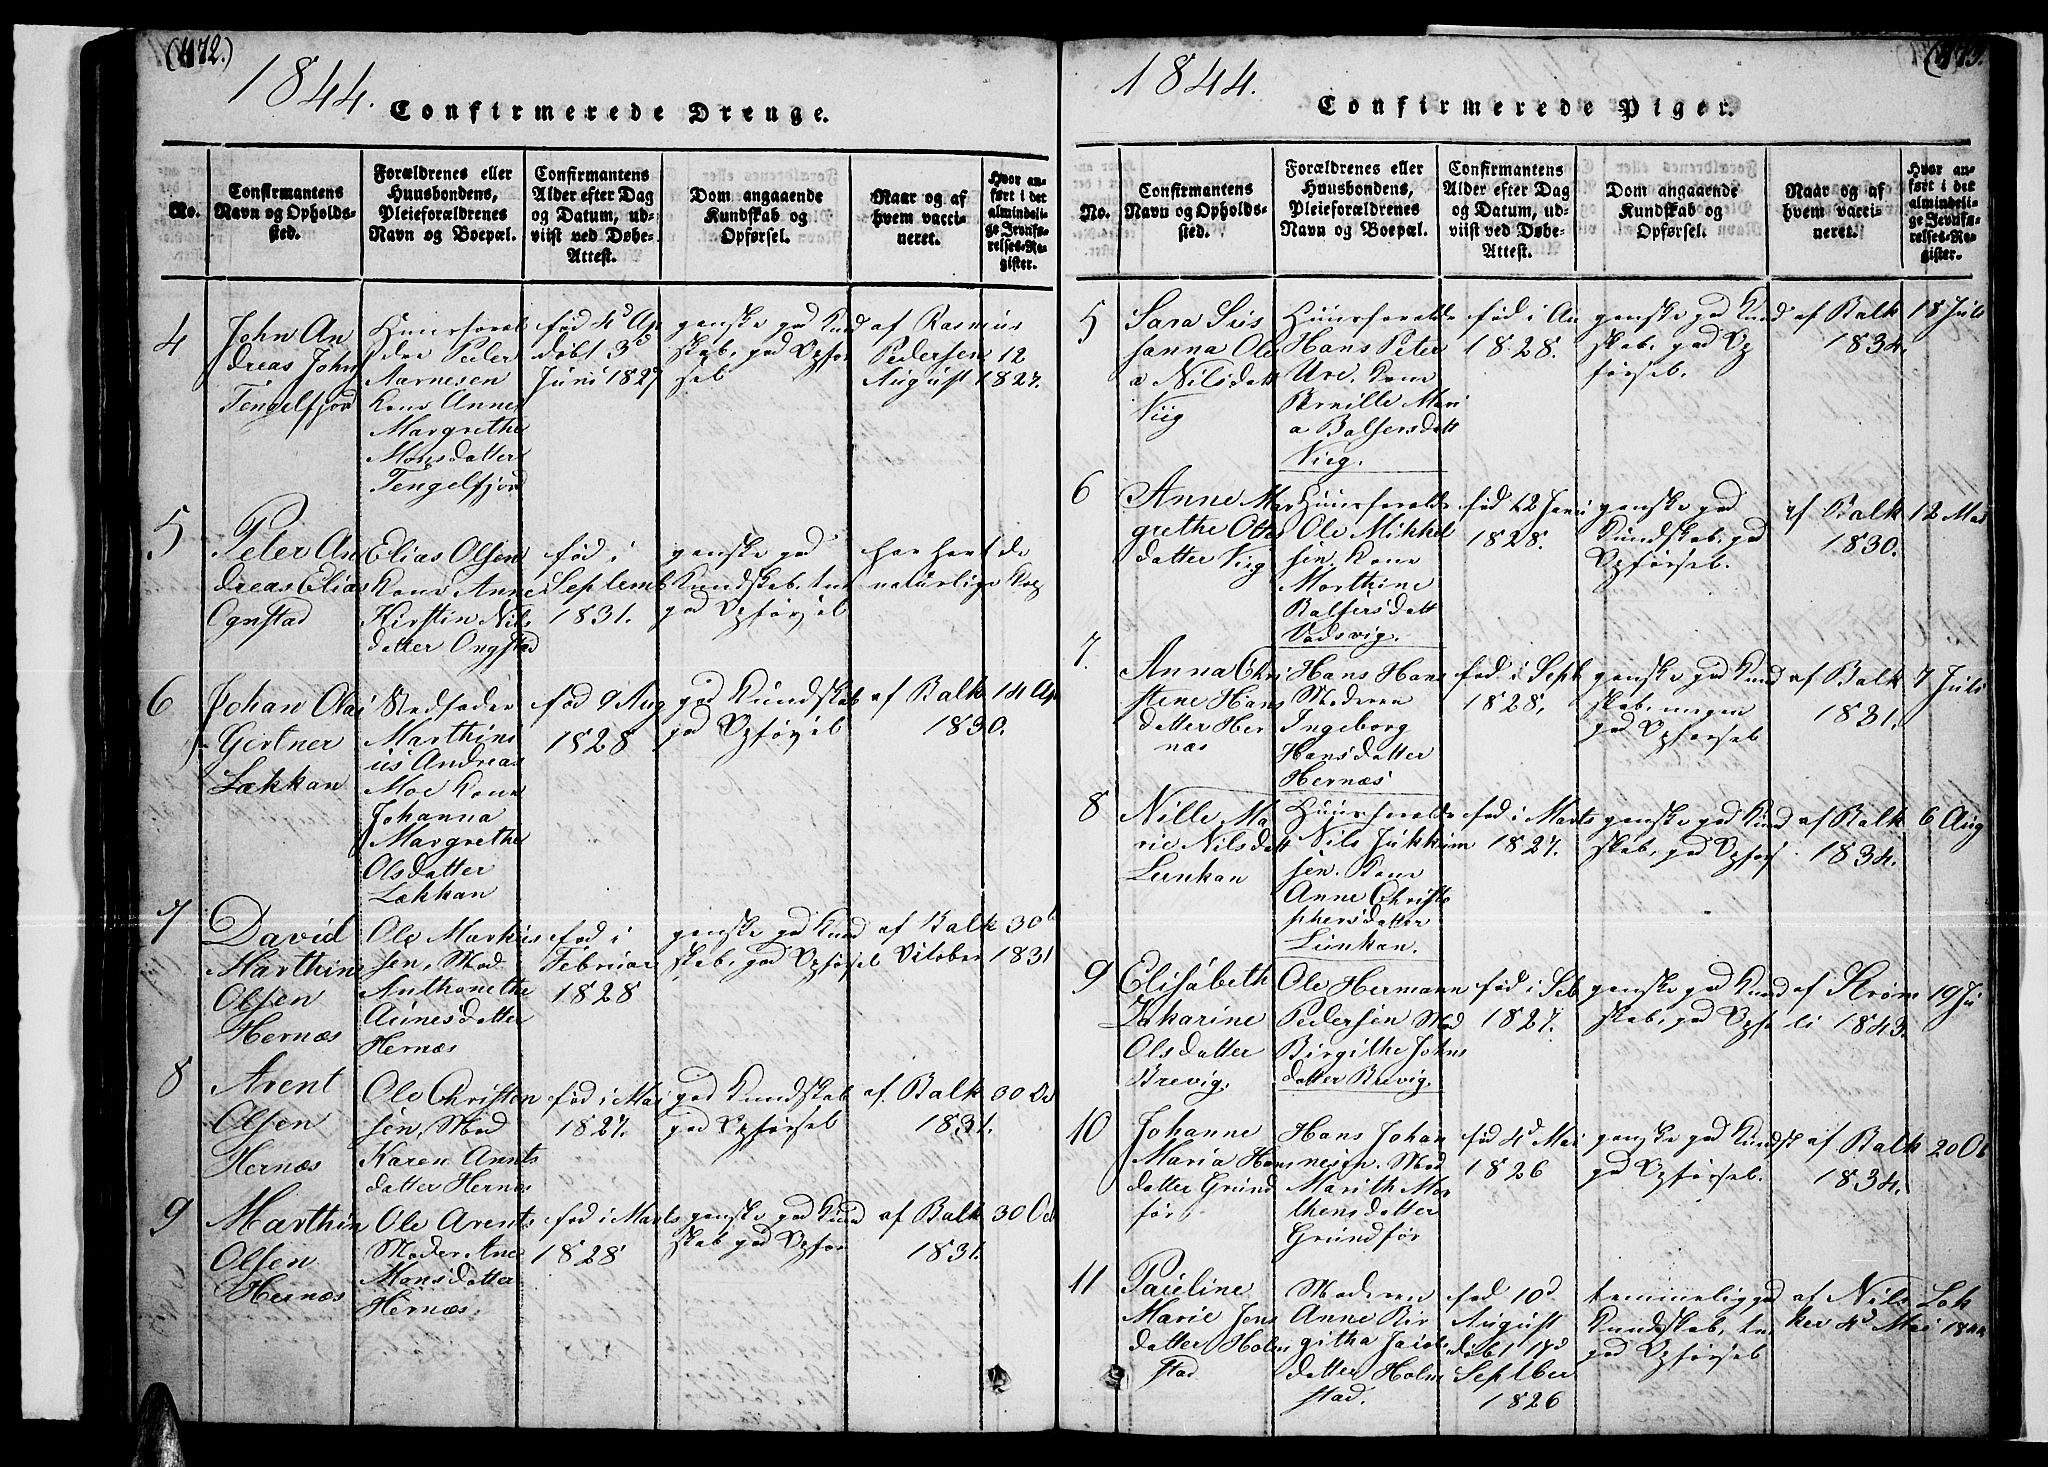 (472.)
1844.
Confirmerede Drenge.
No.
Confirmantens
Navn og Opholds-
sted.
Forældrenes eller
Huusbondens,
Pleieforældrenes
Navn og Boepæl.
Confirmantens
Alder efter Dag
og Datum, ud-
viist ved Døbe-
Attest.
Dom angaaende
Kundskab og
Opførsel.
Naar og af
hvem vacci-
neret.
Hvor an-
ført i det
almindeli-
ge Jevnfø-
relses-Re-
gister.
4
John An
dreas John
Tengelfjord
Huusforæl
dre Peder
Aarnesen
Kone Anne
Margrethe
Monsdatter
Tengelfjord
fød 4d Apr
døbt 3d
Juni 1827
ganske god Kund
skab, god Opfør
sel
af Rasmus
Pedersen 12
August 1827.
5
Peter An
dreas Elias
Ognstad
Elias Olsen
Kone Anne
Kirstin Nils
datter Ongstad
fød i
Septemb
1831.
ganske god
Kundskab,
god Opførsel
har havt de
naturlige Kop
6
Johan Olai
Girtner
Løkkan
Stedfader
Marthin
us Andreas
Moe Kone
Johanna
Margrethe
Olsdatter
Løkkan
fød 9 Aug
1828
god Kundskab
god Opførsel
af Balk 14 Ap
1830.
7
David
Marthin
Olsen
Hernæs
Ole Markus
sen, Mod
Anthonethe
Hernæs
fød i
Februar
1828
ganske god Kund
skab, god Opførsel
af Balk 30
October 1831
8
Arent
Olsen
Hernæs
Ole Christen
sen, Mod
Karen Arnts
datter Hernæs
fød i Mai
1827.
god Kundskab
god Opførsel
af Balk 30 Oc
1831.
9
Marthin
Olsen
Hernæs
Ole Arents
Moder Ane
Monsdatter
Hernæs.
fød i Marts
1828
ganske god Kund
skab god Opfør
af Balk 30 Oct
1831.
(473.
1844.
Confirmerede Piger.
No.
Confirmantens
Navn og Opholds-
sted.
Forældrenes eller
Huusbondens,
Pleieforældrenes
Navn og Boepæl.
Confirmantens
Alder efter Dag
og Datum, ud-
viist ved Døbe-
Attest.
Dom angaaende
Kundskab og
Opførsel.
Naar og af
hvem vacci-
neret.
Hvor an-
ført i det
almindeli-
ge Jevnfø-
relses-Re-
gister.
5
Sara Sus
sanna Ole
a Nilsdatt
Viig
Huusforældre
Hans Peter
Ure. Kone
Pernille Mari
a Balsersdatt
Vieg.
fød i
1828.
ganske god Kund
skab, god Op
førsel.
af Balk 18 Juli
1834.
6
Anne Mar
grethe Ols
datter Viig
Huusforældre
Ole Mikkel
sen. Kone
Marthine
Balsersdatt
Vadsvig.
fød 12 Juni
1828.
ganske god
Kundskab, god
Opførsel.
af Balk 12 Mai
1830.
7.
Anna Chri
stene Hans
datter Her
næs
Hans Hans
Moderen
Ingeborg
Hansdatter
Hernæs
fød i Sept
1828,
ganske god Kund
skab, megen
god Opførsel
af Balk 7 Juli
1831.
8
Nille Ma
rie Nilsdatt
Lunkan
Huusforældre
Nils Jukkum
sen. Kone
Anne Christo
phersdatter
Lunkan.
fød i Marts
1827.
ganske god Kund
skab, god Opførs
af Balk 6 Aug
1834.
9
Elisabeth
Zakarine
Olsdatter
Brevig.
Ole Hermann
Pedersen Mod
Birgithe Johns
datter Brevig.
fød i
1827.
ganske god Kund
skab, god Opfø
af Strøm 19 Ju
li 1843.
10
Johanne
Maria Hans
datter Grund
før
Hans Johan
nesen. Mod
Marith Mor
thensdatter
Grundfør
fød 4d Mai
1826
ganske god Kundsk
god Opførsel.
af Balk 20 Oc
1834.
11
Pauline
Marie Jens
datter Holm
stad
Moderen
Anne Bir
githa Jacobs
datter Holm
stad.
fød 10d
August
døbt 17d
Septber
1826
temmelig god
Kundskab,
god Opførsel
af Nils Løk
ker 4d Mai 1844